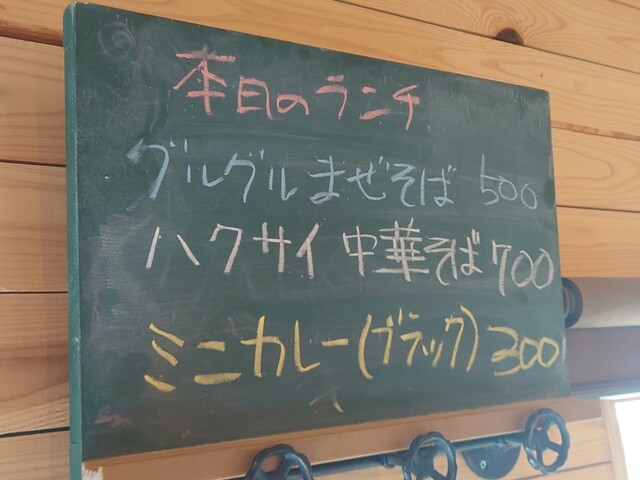 本日のランチ
グルグルまぜそば 500
ハクサイ中華そば 700
ミニカレー(ブラック) 300